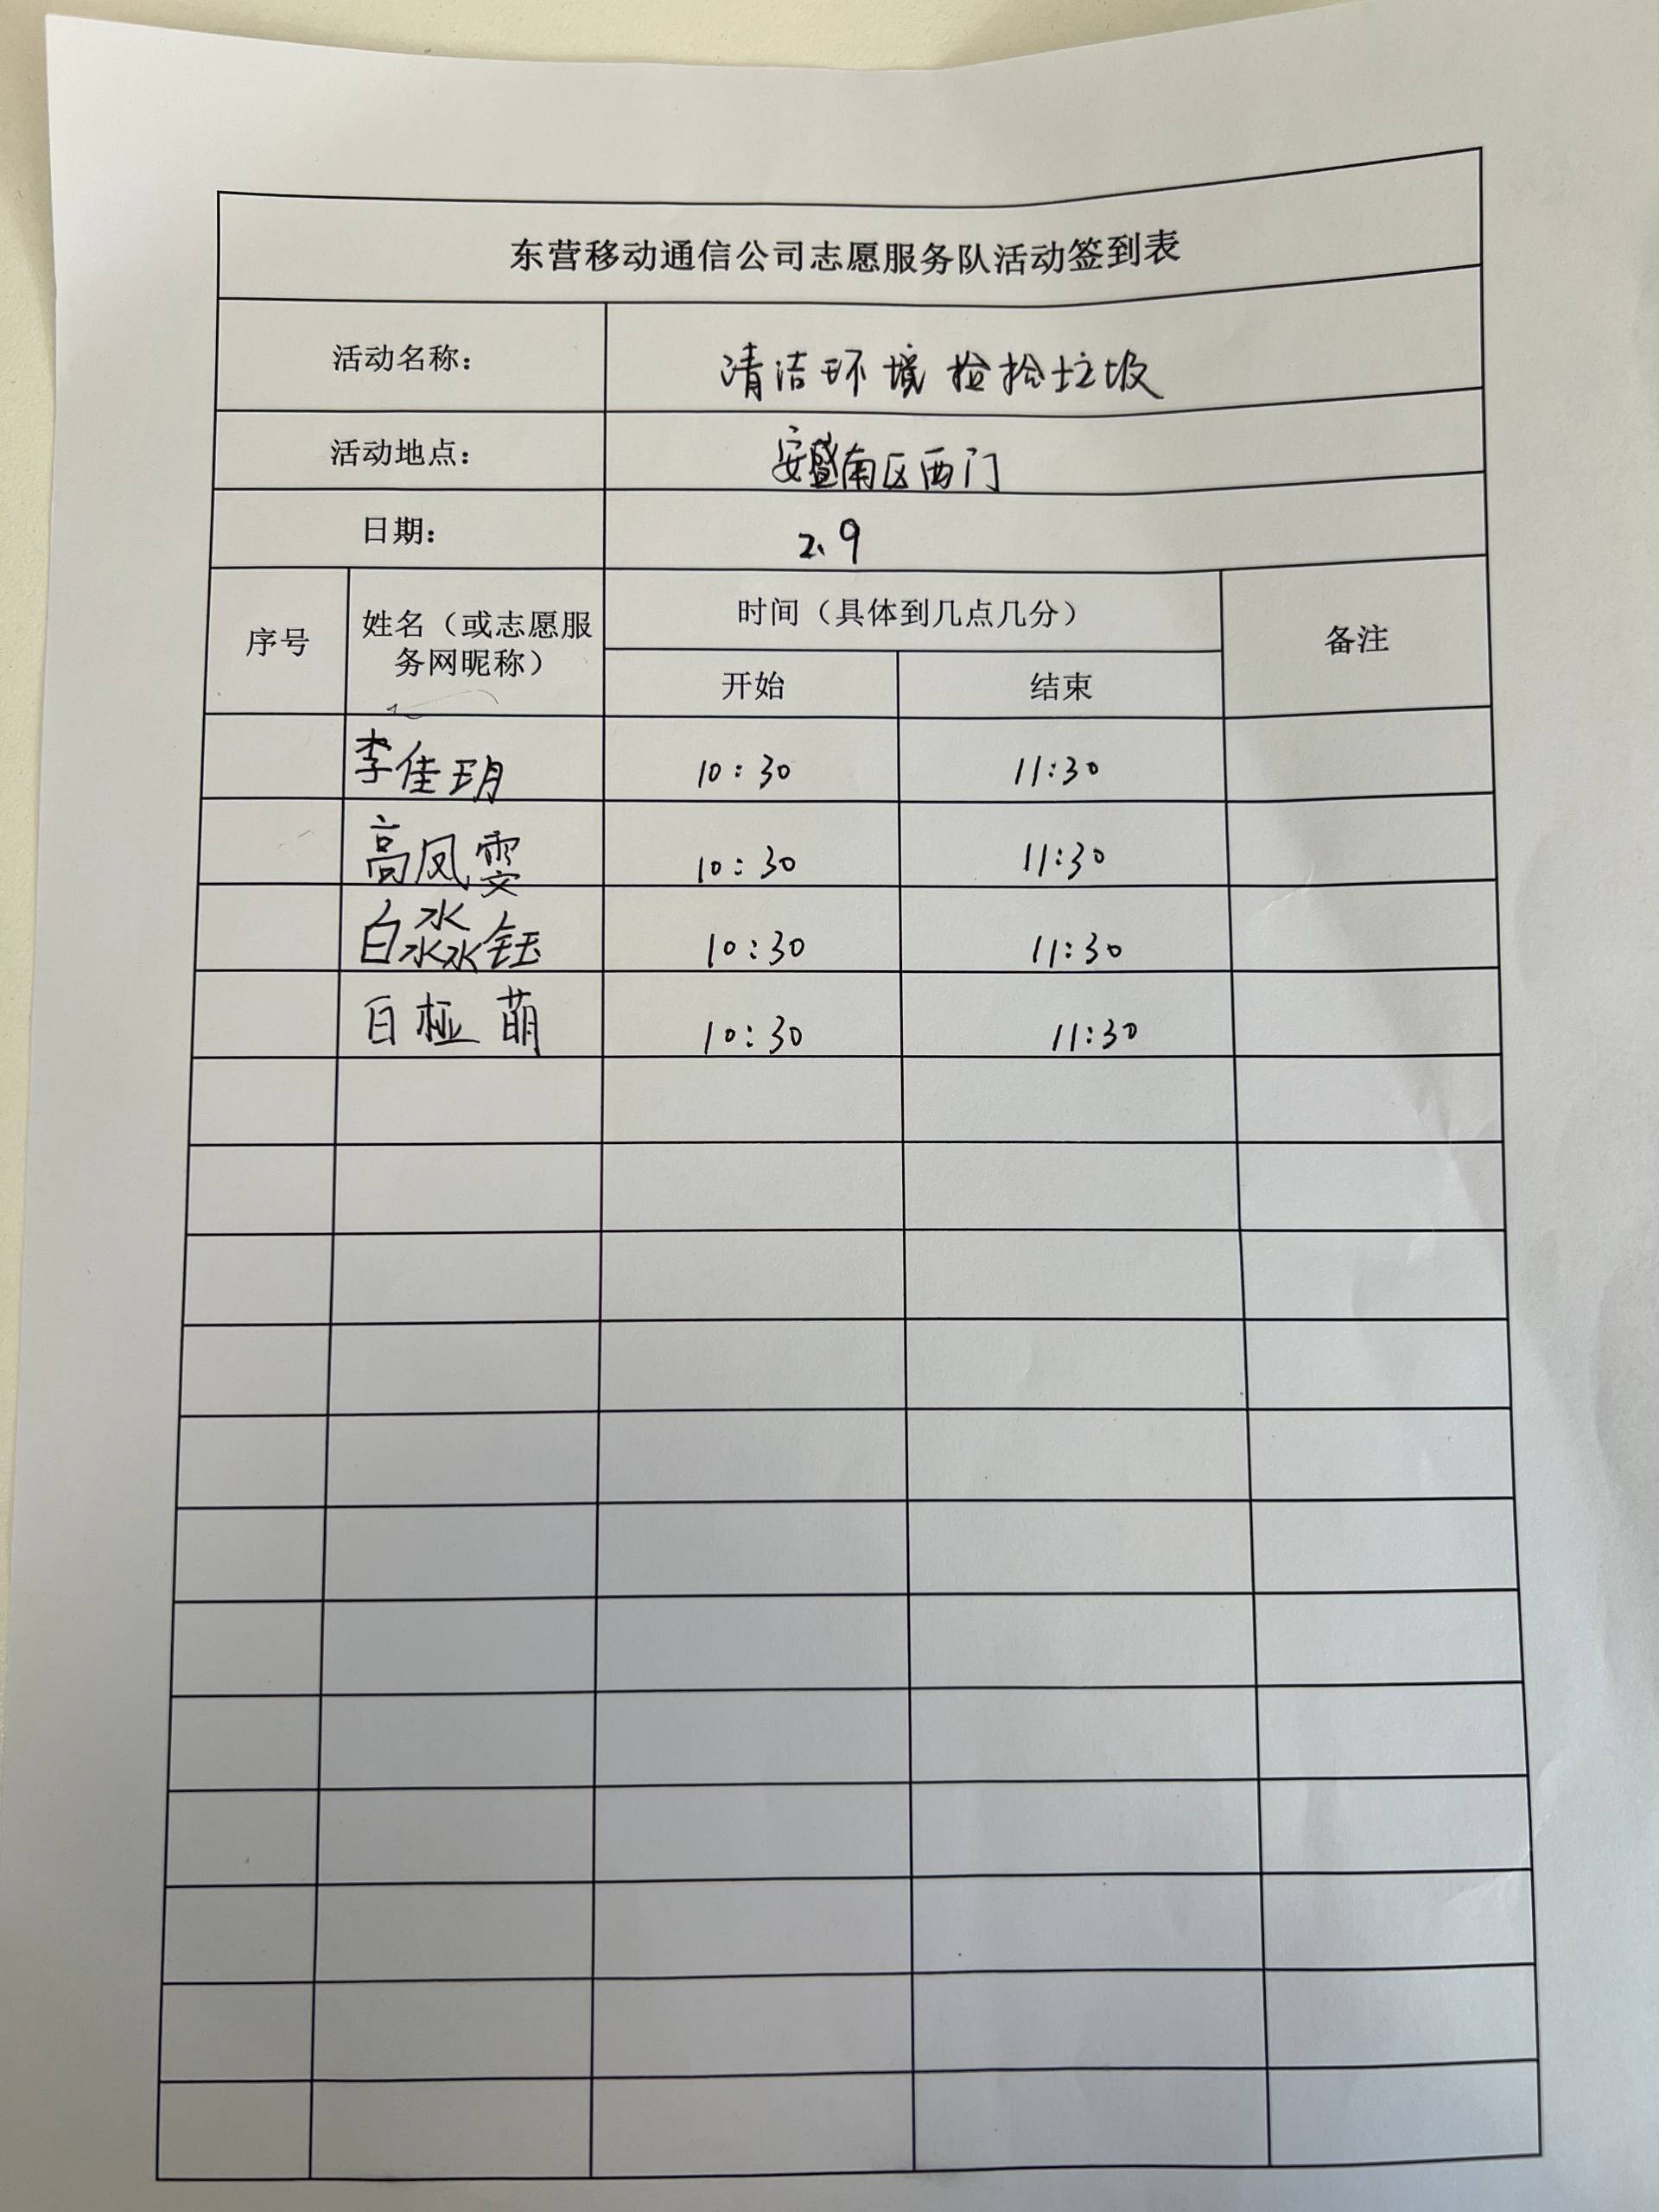 东营移动通信公司志愿服务队活动签到表
活动名称： 清洁环境 捡拾垃圾
活动地点： 安盛南区西门
日期： 2.9
序号 姓名（或志愿服务网昵称） 时间（具体到几点几分） 备注
开始 结束
李佳玥 10:30 11:30
高凤雯 10:30 11:30
白淼钰 10:30 11:30
白桠萌 10:30 11:30